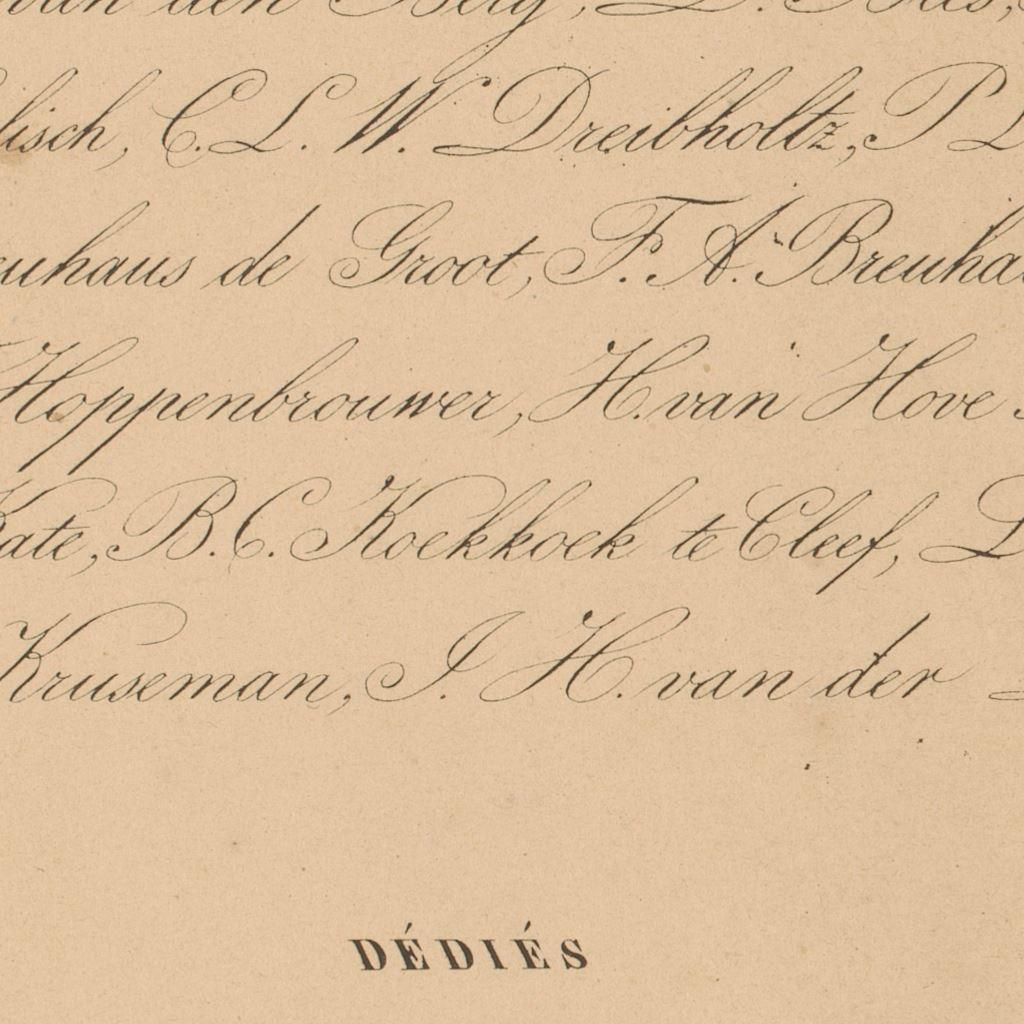 van den Berg, L.
lisch, C. L. W. Dreibholtz, P L
euhaus de Groot, F. A. Breuha
Hoppenbrouwer, H. van Hove
Kate, B. C. Koekkoek te Cleef, L
Kruseman, J. H. van der
DÉDIÉS